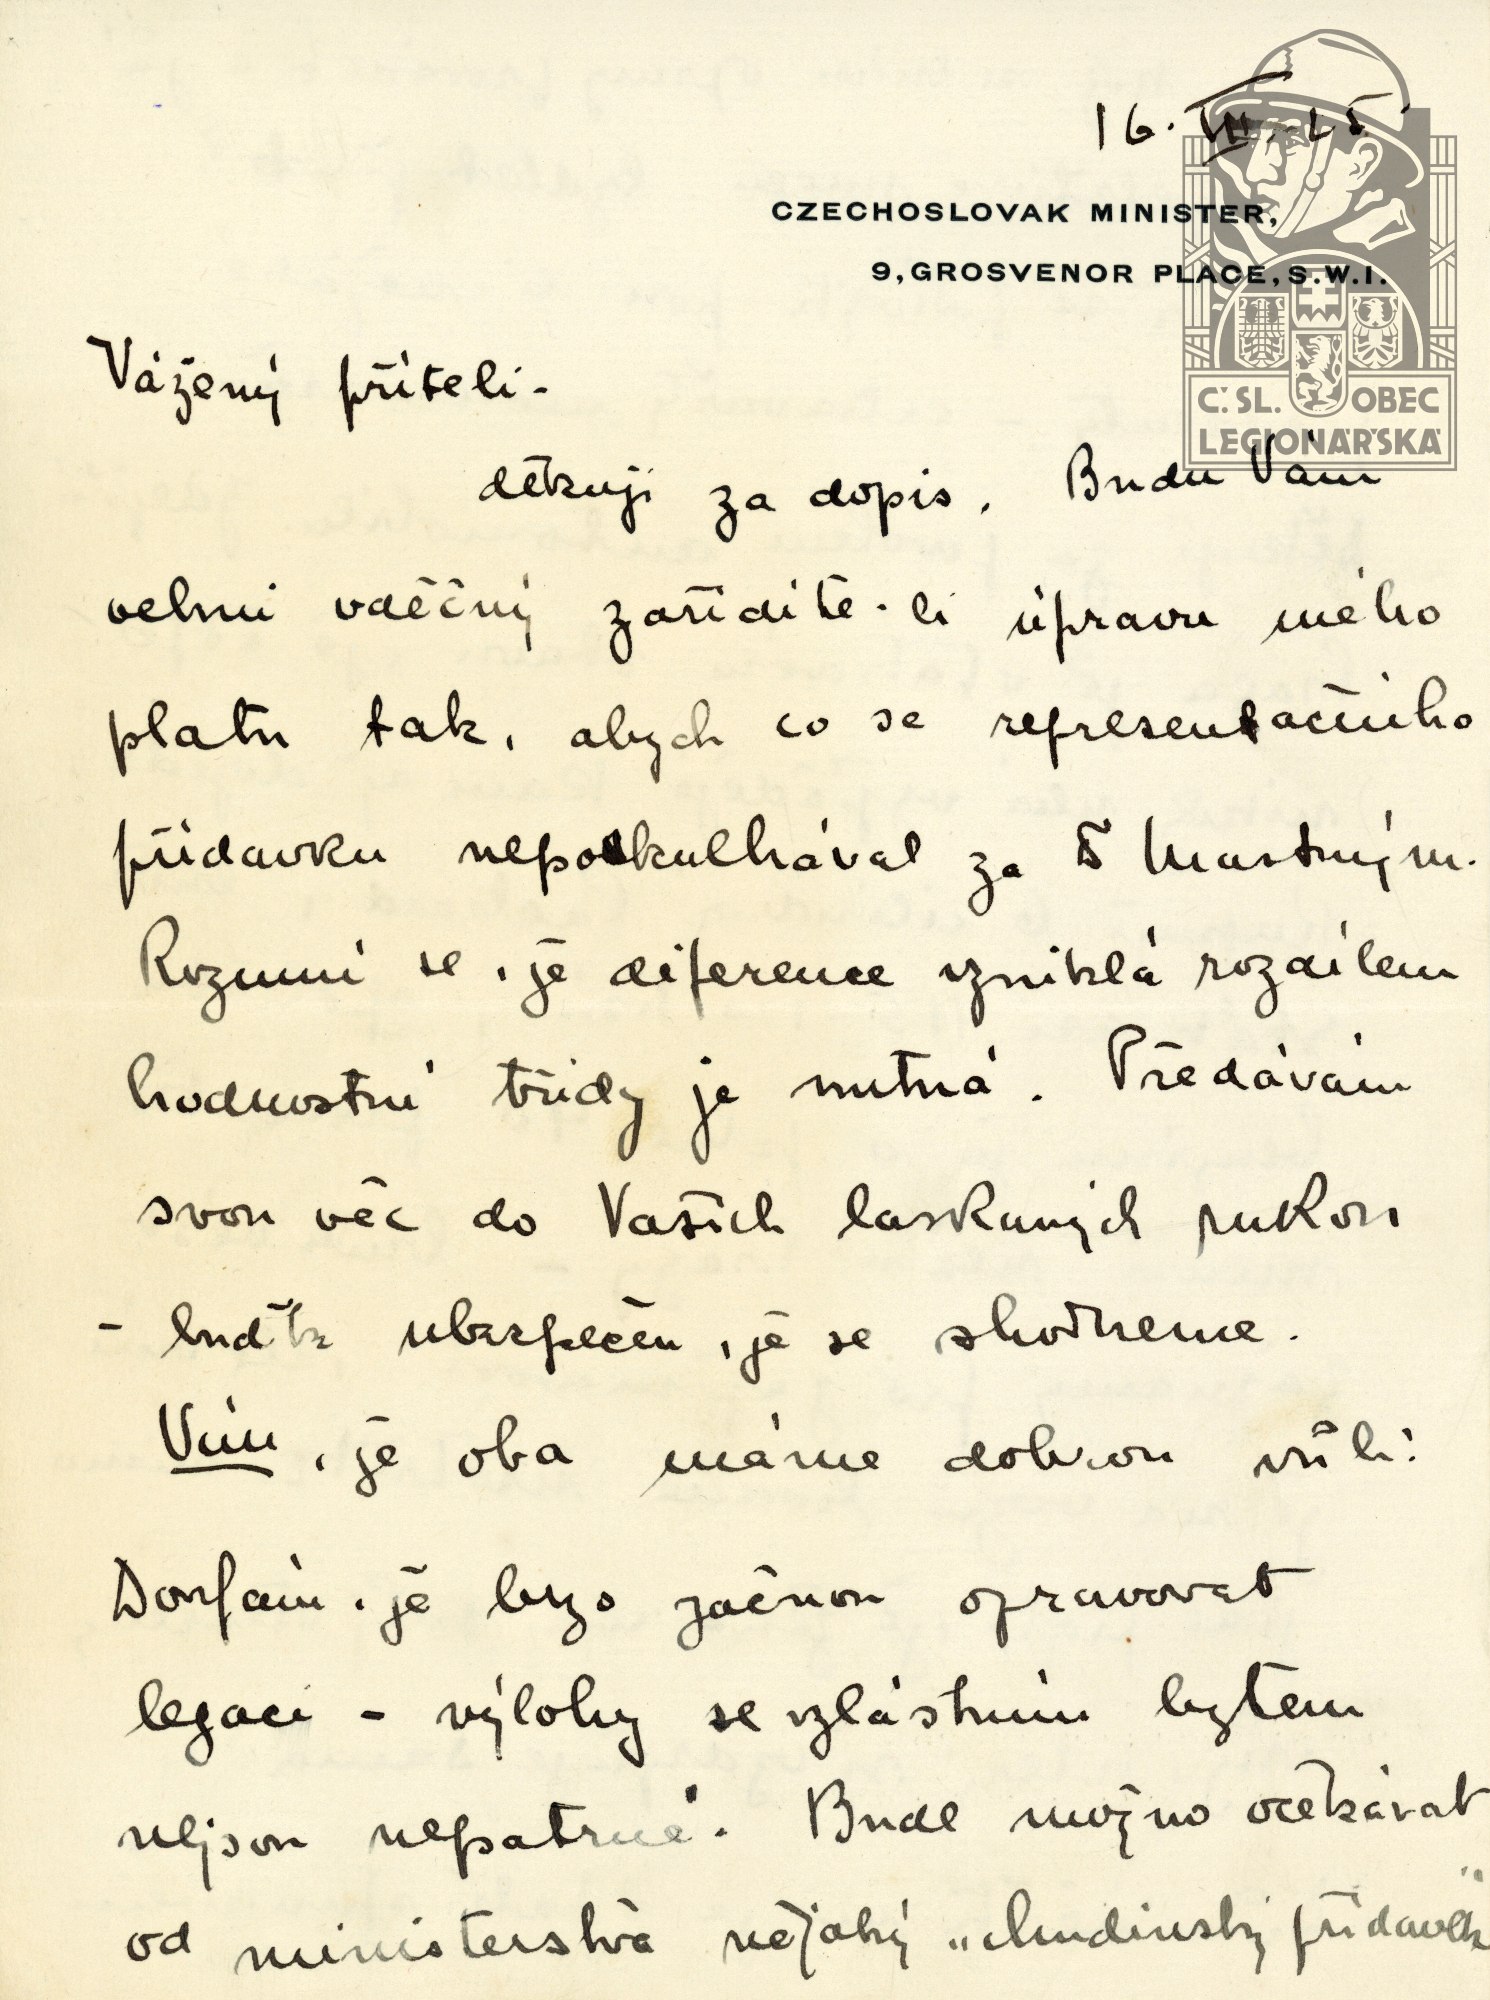 16. VIII. 25
CZECHOSLOVAK MINISTER,
9, GROSVENOR PLACE, S.W.1.
Č. SL. OBEC
LEGIONÁŘSKÁ
Vážený příteli -
děkuji za dopis. Budu Vám
velmi vděčný zařídíte-li úpravu mého
platu tak, abych co se representačního
přídavku nepokulhával za Mastným.
Rozumí se, že diference vzniklá rozdílem
hodnostní třídy je nutná. Předávám
svou věc do Vašich laskavých rukou
- buďte ubezpečen, že se shodneme.
Vím, že oba máme dobrou vůli!
Doufám, že brzo začnou opravovat
legaci - výlohy se vzláštním bytem
nejsou nepatrné. Bude možno očekávat
od ministerstva nějaký „chudinský přídavek“